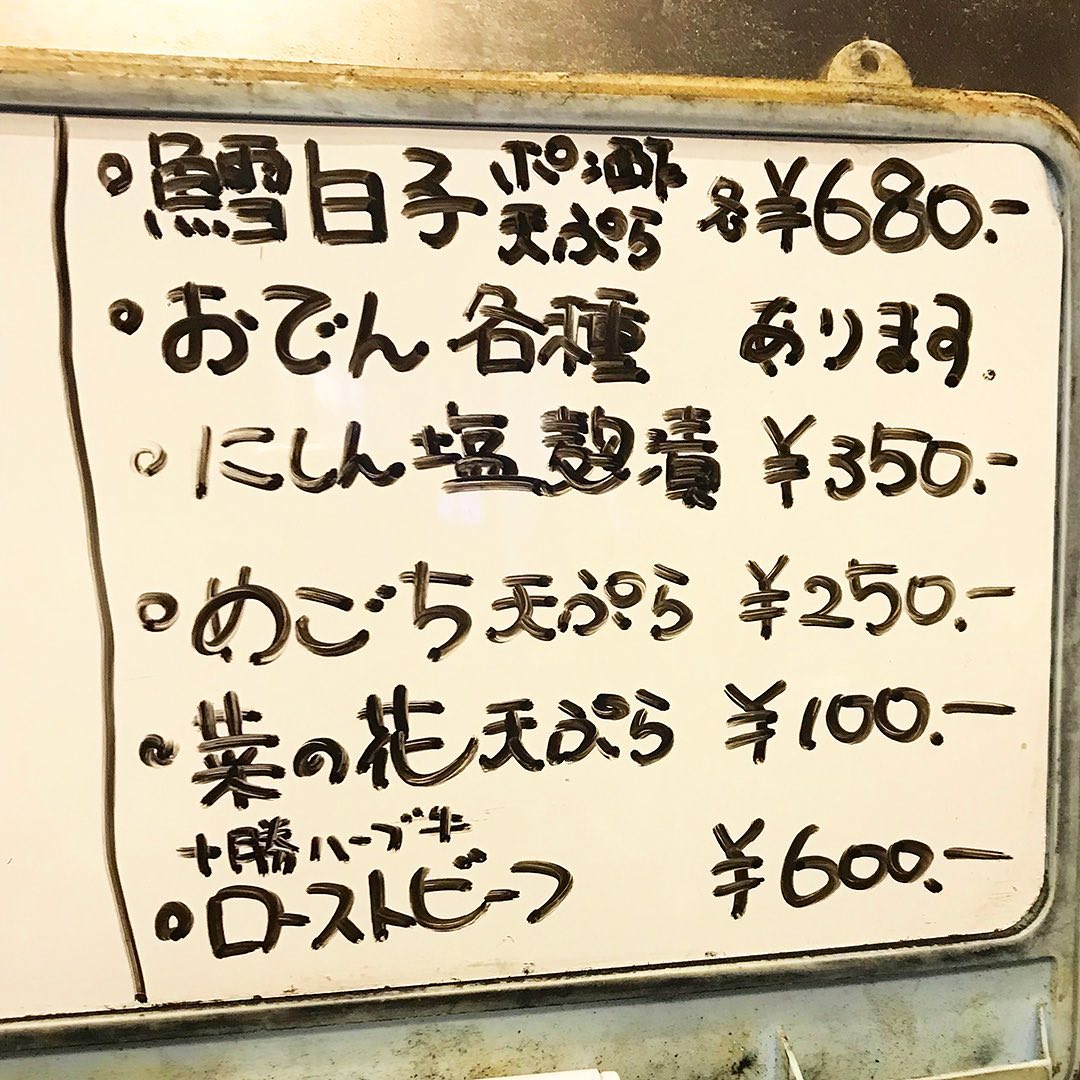 鱈白子 ポン酢 天ぷら 各¥680.-
おでん各種 あります.
にしん塩麹漬 ¥350.-
めごち天ぷら ¥250.-
菜の花天ぷら ¥100.-
十勝ハーブ牛
ローストビーフ ¥600.-